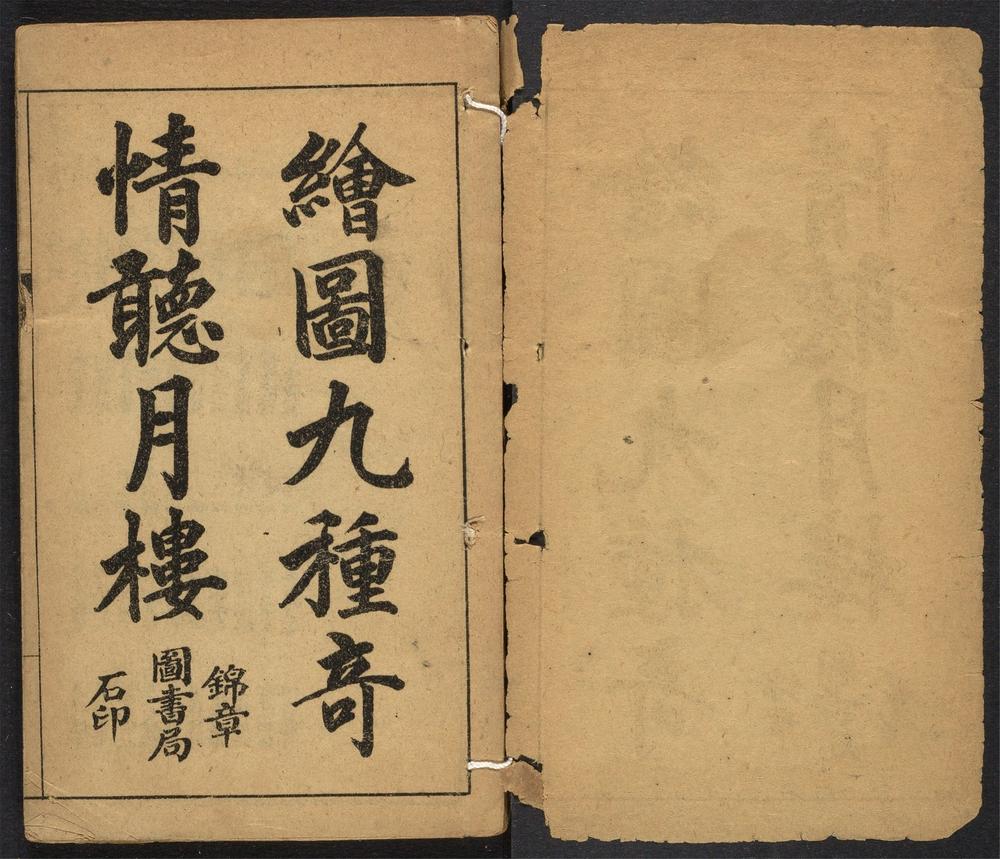 繪圖九種竒
情聽月樓
錦章
圖書局
石印